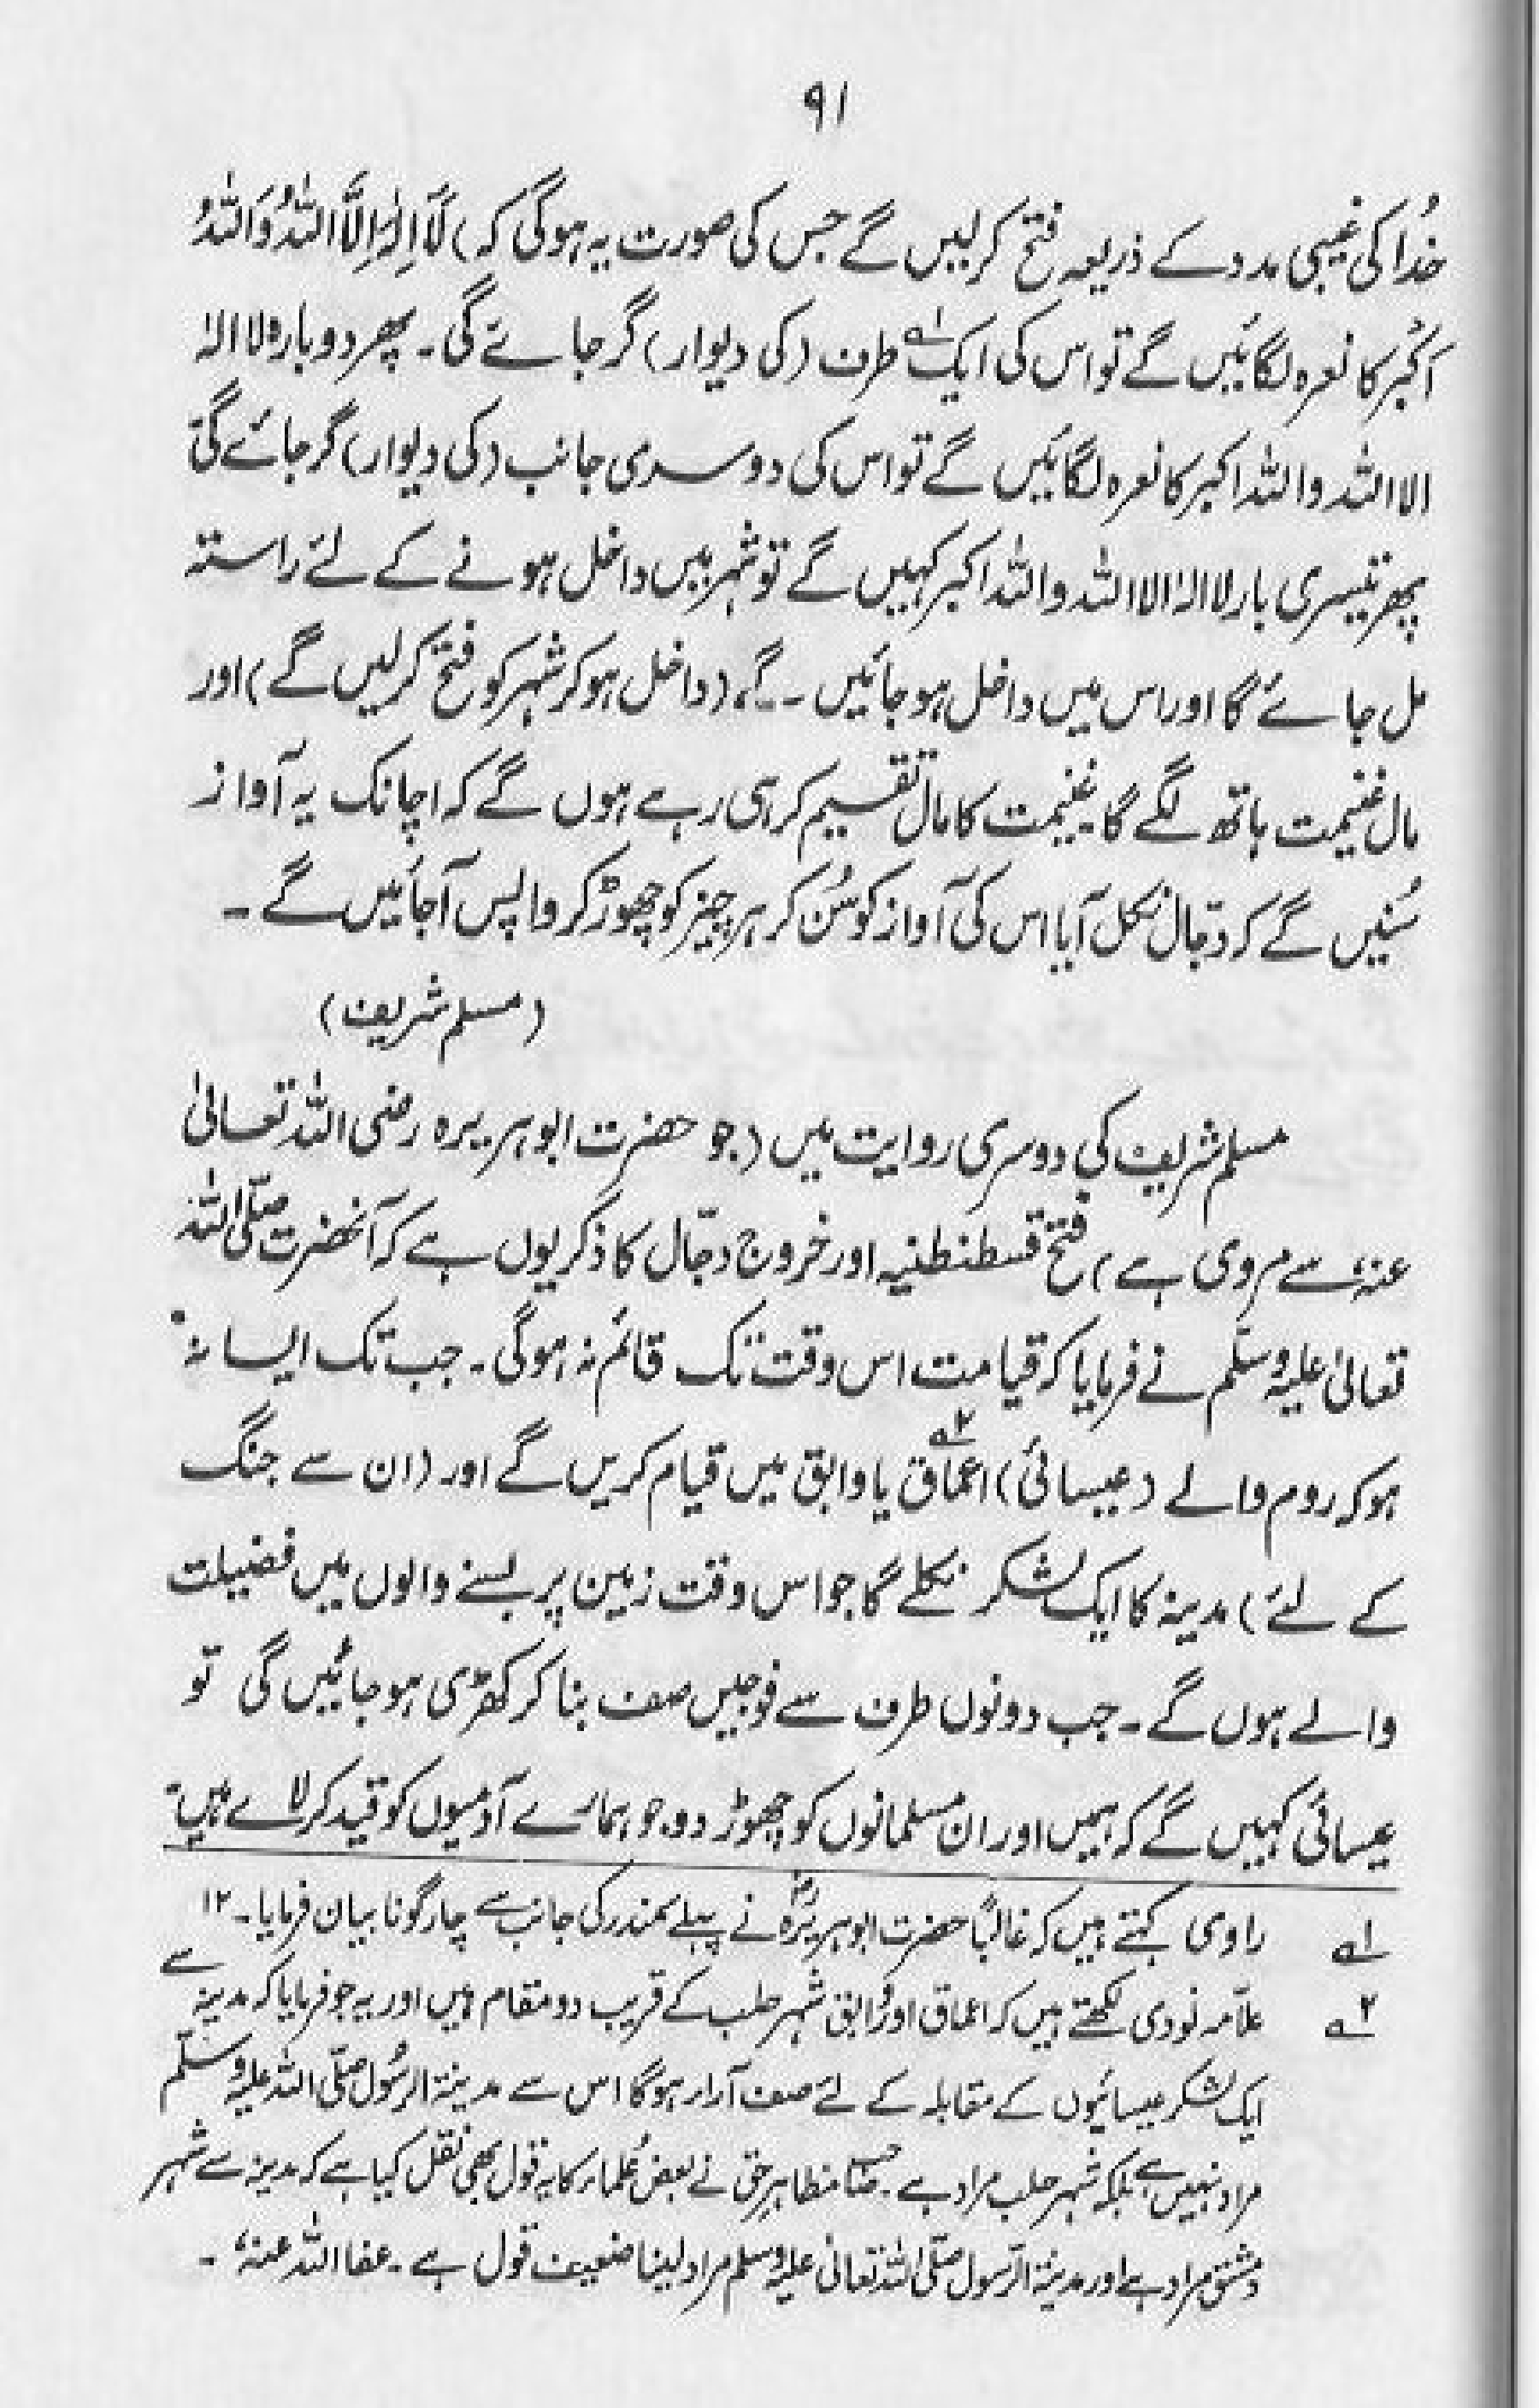 ۹۱
خُدا کی غیبی مدد کے ذریعہ فتح کرلیں گے جس کی صورت یہ ہوگی کہ) لَآ اِلٰہَ اِلَّا اللہُ وَاللہُ
اَکْبَر کا نعرہ لگائیں گے تو اس کی ایک لے طرف (کی دیوار) گر جائے گی۔ پھر دوبارہ لا الہٰ
الا اللہ واللہ اکبر کا نعرہ لگائیں گے تو اس کی دوسری جانب (کی دیوار) گر جائے گی۔
پھر تیسری بار لا الہٰ الا اللہ واللہ اکبر کہیں گے تو شہر میں داخل ہونے کے لئے راستہ
مل جائے گا اور اس میں داخل ہو جائیں۔ گے، (داخل ہوکر شہر کو فتح کرلیں گے) اور
مال غنیمت ہاتھ لگے گا۔ غنیمت کا مال تقسیم کر ہی رہے ہوں گے کہ اچانک یہ آواز
سُنیں گے کہ دجّال نکل آیا اس کی آواز کو سُن کر ہر چیز کو چھوڑ کر واپس آجائیں گے۔
(مسلم شریف)
مسلم شریف کی دوسری روایت میں (جو حضرت ابوہریرہ رضی اللہ تعالیٰ
عنہ، سے مروی ہے) فتح قسطنطنیہ اور خروج دجّال کا ذکر یوں ہے کہ آنحضرت صلّی اللہ
تعالیٰ علیہ وسلّم نے فرمایا کہ قیامت اس وقت تک قائم نہ ہوگی۔ جب تک ایسا نہ
ہو کہ روم والے (عیسائی) اعماق ۲ے یا وابق میں قیام کریں گے اور (ان سے جنگ
کے لئے) مدینہ کا ایک لشکر نکلے گا جو اس وقت زمین پر بسنے والوں میں فضیلت
والے ہوں گے۔ جب دونوں طرف سے فوجیں صف بنا کر کھڑی ہو جائیں گی تو
عیسائی کہیں گے کہ ہمیں اور ان مسلمانوں کو چھوڑ دو۔ جو ہمارے آدمیوں کو قید کر لائے ہیں۔
۱ے راوی کہتے ہیں کہ غالباً حضرت ابوہریرہؓ نے پہلے سمندر کی جانب سے چار گونا بیان فرمایا۔ ۱۲
۲ے علاّمہ نووی لکھتے ہیں کہ اعماق اور وابق شہر حلب کے قریب دو مقام ہیں اور یہ جو فرمایا کہ مدینہ سے
ایک لشکر عیسائیوں کے مقابلہ کے لئے صف آراء ہوگا اس سے مدینۃ الرسُول صلّی اللہ علیہ وسلّم
مراد نہیں ہے بلکہ شہر حلب مراد ہے۔ صاحب مظاہرِ حق نے بعض عُلماء کا یہ قول بھی نقل کیا ہے کہ مدینہ سے شہر
دمشق مراد ہے اور مدینۃ الرسول صلّی اللہ تعالیٰ علیہ وسلّم مراد لینا ضعیف قول ہے۔ عفا اللہ عنہ،۔